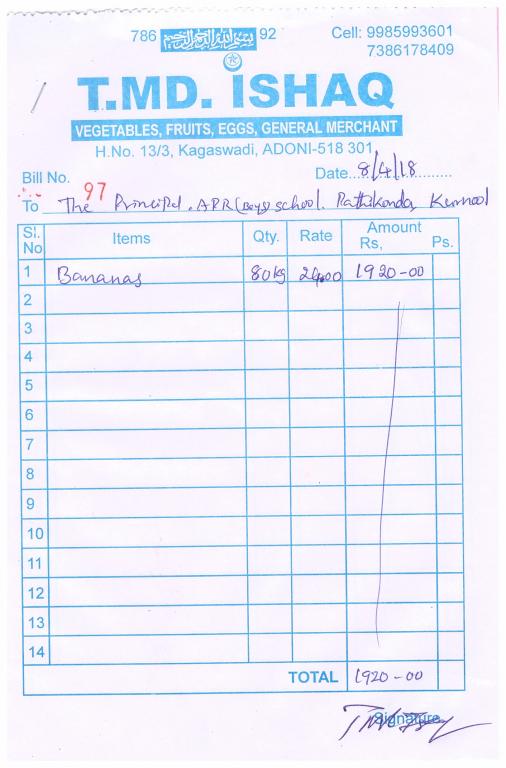 786 بسم الله الرحمن الرحيم 92 Cell: 9985993601
7386178409
T.MD. ISHAQ
VEGETABLES, FRUITS, EGGS, GENERAL MERCHANT
H.No. 13/3, Kagaswadi, ADONI-518 301
Bill No. 97 Date...8/4/18
To The Principal, APR (Boys) school. Pattikonda, Kurnool
Sl. No Items Qty. Rate Amount Rs, Ps.
1 Bananas 80kg 24.00 1920-00
2
3
4
5
6
7
8
9
10
11
12
13
14
TOTAL 1920-00
Signature